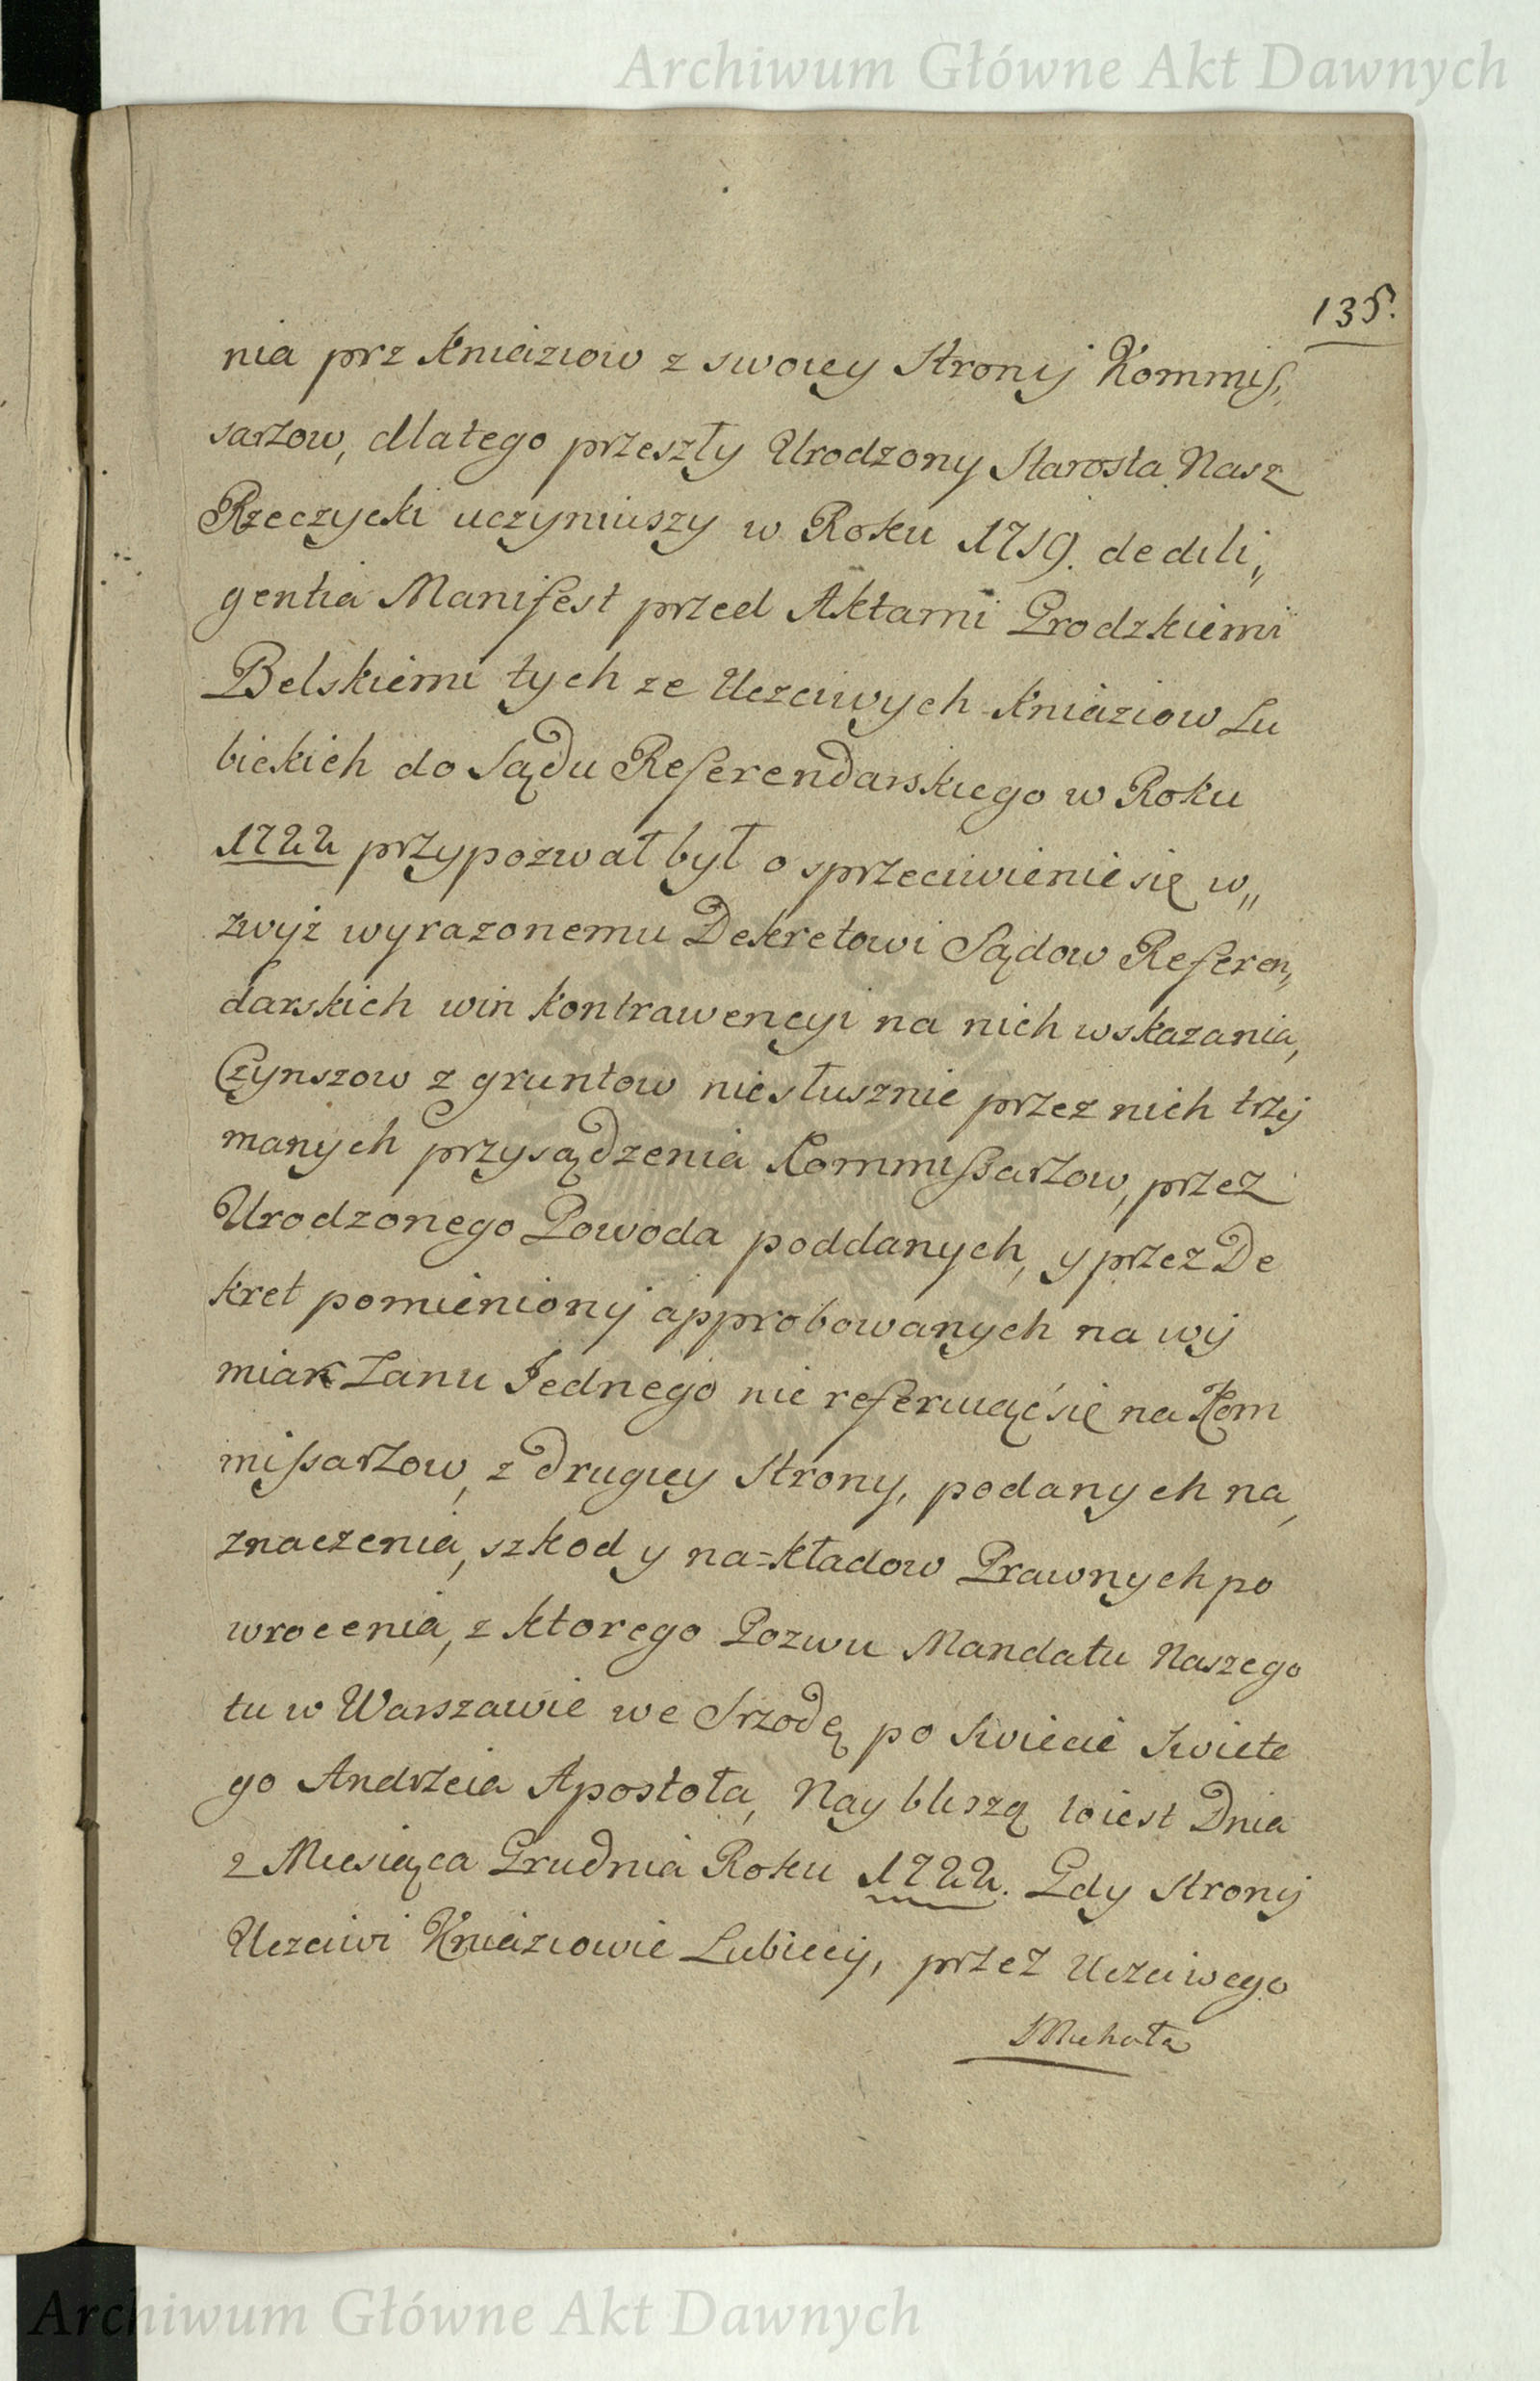 Archiwum Główne Akt Dawnych
135.
nia prz Kniaziow z swoiey Strony Kommis,
sarzow, dlatego przeszły Urodzony Starosta Nasz
Rzeczycki uczyniwszy w Roku 1719. de dili„
gentia Manifest przed Aktami Grodzkiemi
Belskiemi tych ze Uczciwych Kniaziow Lu
bickich do Sądu Referendarskiego w Roku
1722 przypozwał był o sprzeciwienie się w„
zwyż wyrazonemu Dekretowi Sądow Referen„
darskich win kontrawencyi na nich wskazania,
Czynszow z gruntow niesłusznie przez nich trzy
manych przysądzenia Kommissarzow, przez
Urodzonego Powoda poddanych, y przez De
kret pomieniony approbowanych na wy
miar Łanu Jednego nie referuiąc się na Kom
missarzow, z drugiey Strony, podanych na,
znaczenia, szkod y na=kładow Prawnych po
wrocenia, z ktorego Pozwu Mandatu Naszego
tu w Warszawie we Srzodę po Swiecie Swiete
go Andrzeia Apostoła, Nay bliszą to iest Dnia
2 Miesiąca Grudnia Roku 1722. Gdy Strony
Uczciwi Kniaziowie Lubiecy, przez Uczciwego
Michała
Archiwum Główne Akt Dawnych